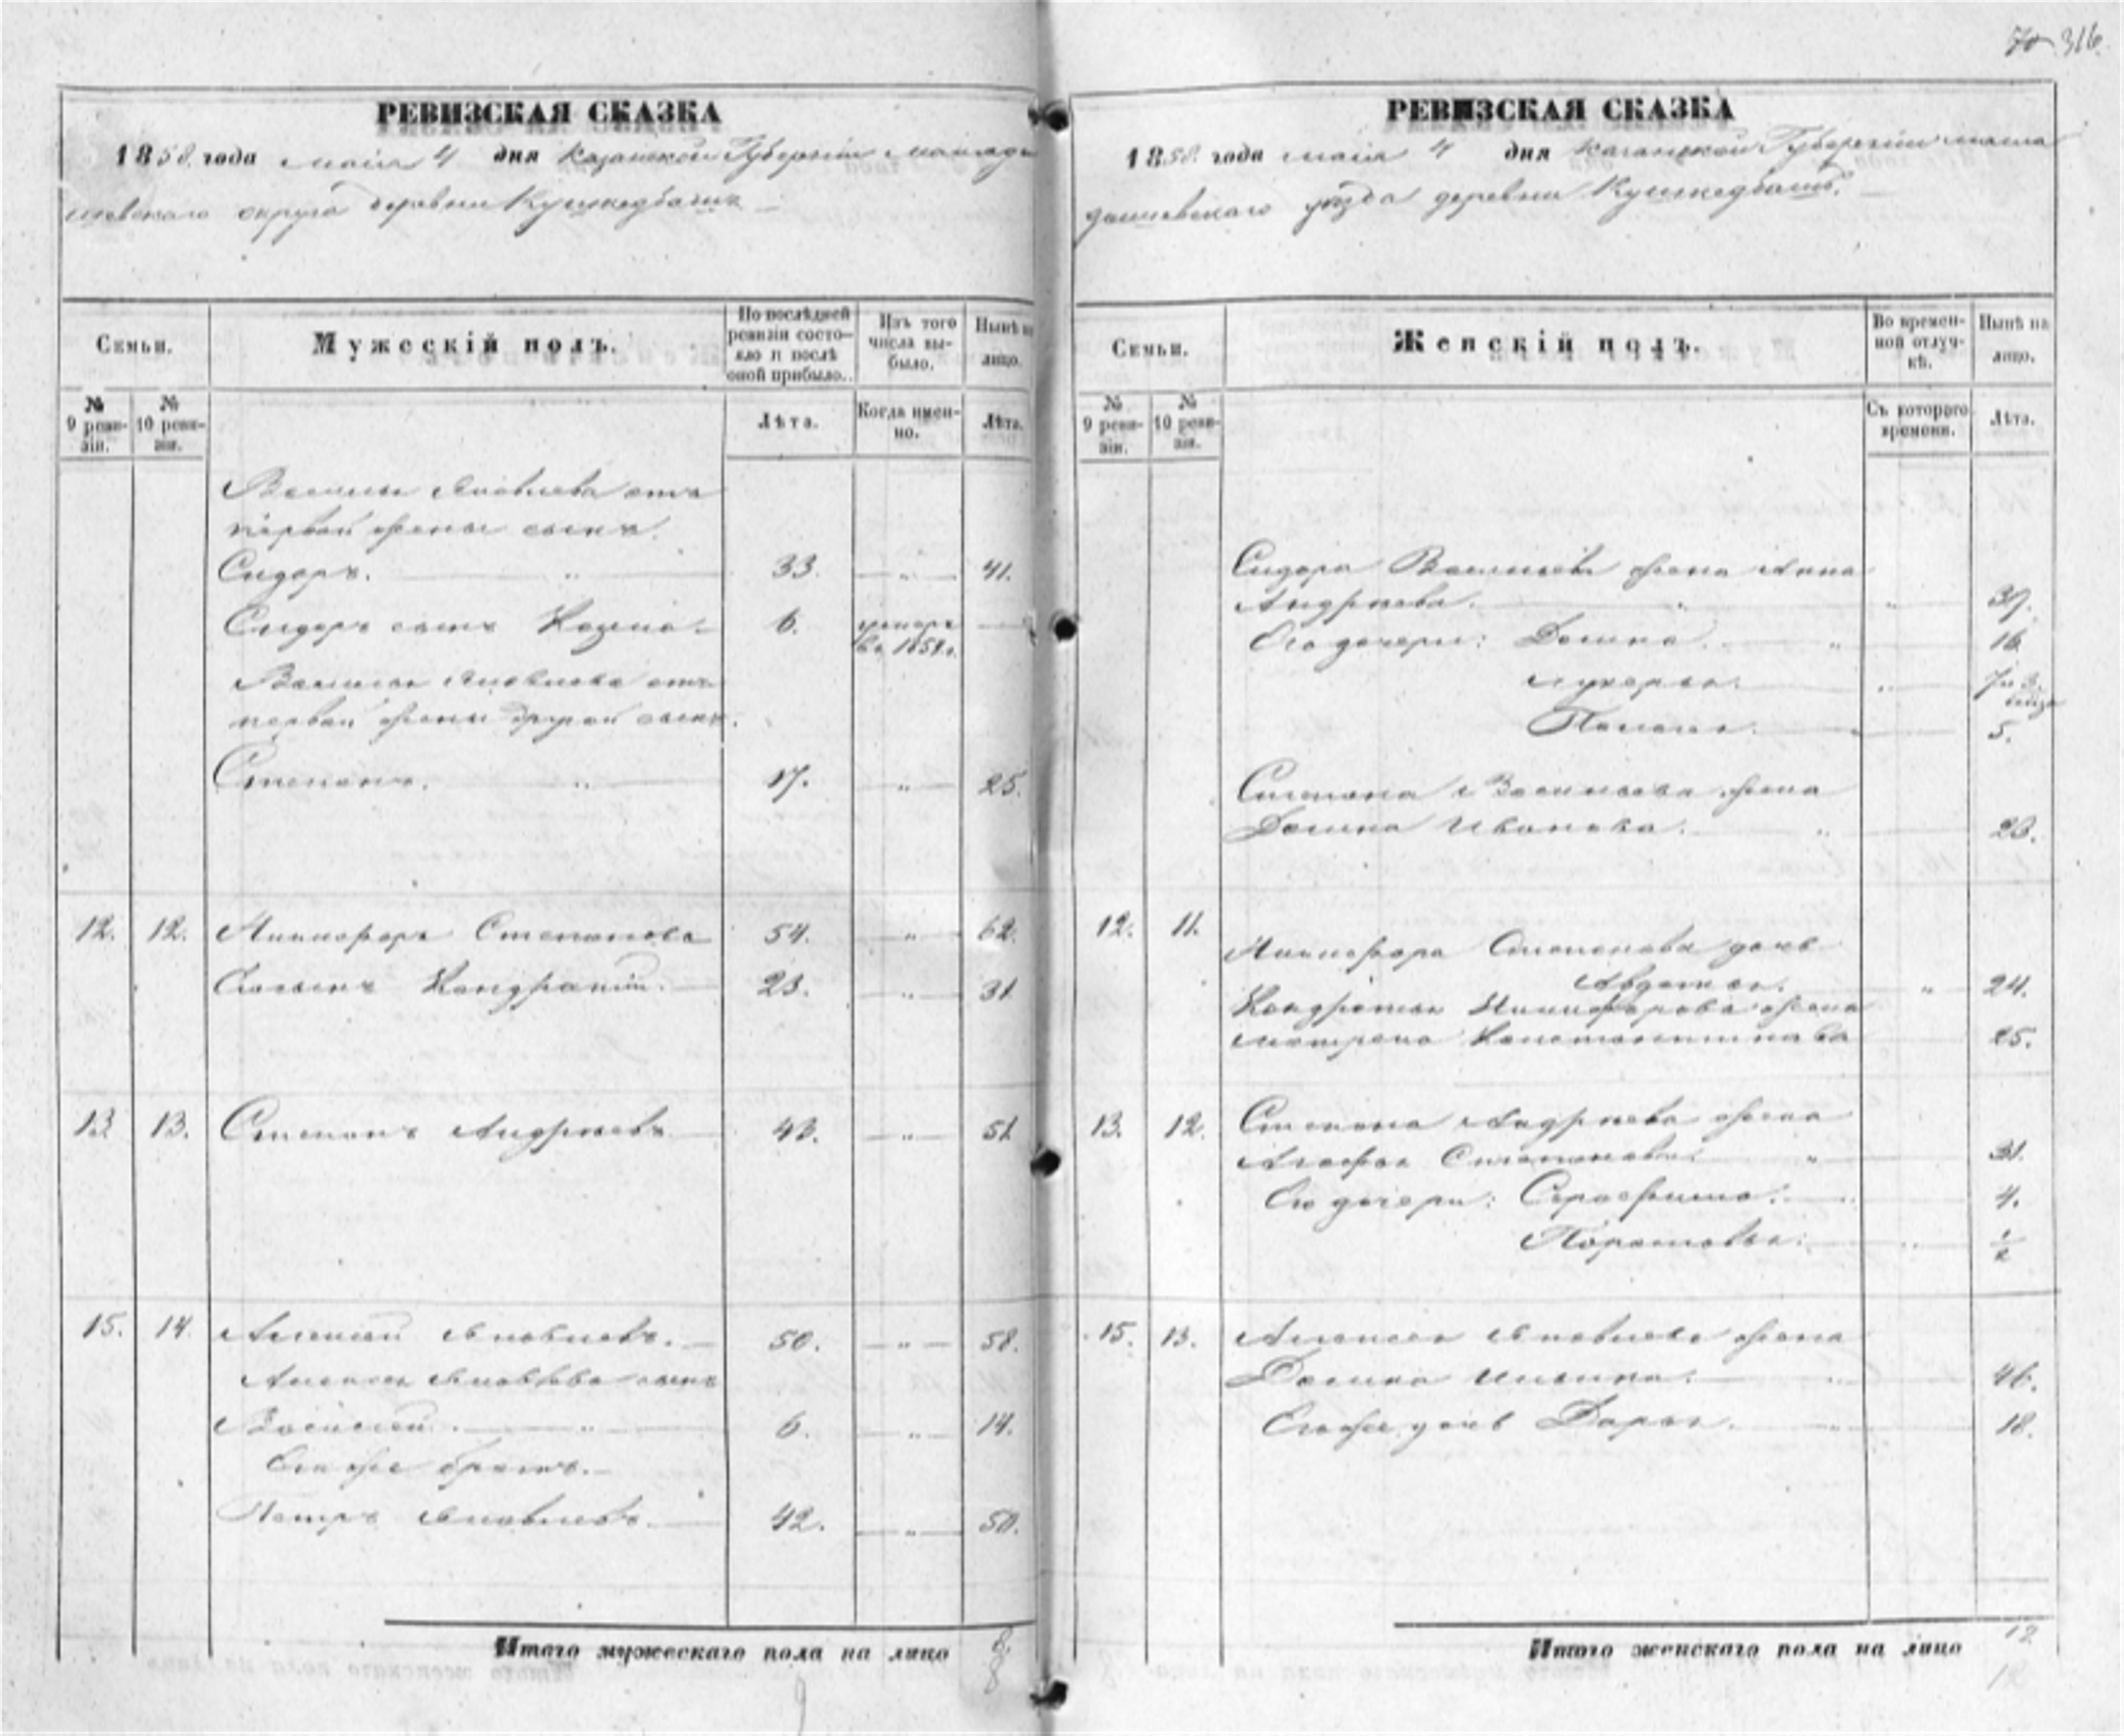 316.
РЕВИЗСКАЯ СКАЗКА
1858 года маія 4 дня Казанской Губерніи Мамады
шевскаго округа деревни Кушкедбашъ
Семьи.
Мужескій полъ.
По послѣдней ревизіи состояло и послѣ оной прибыло.
Изъ того числа выбыло.
Нынѣ на лицо.
№ 9 ревизіи.
№ 10 ревизіи.
Лѣта.
Когда именно.
Лѣта.
Василья Яковлева отъ
первой жены сынъ.
Сидоръ. 33. 41.
Сидора сынъ Козма. 6. умеръ
въ 185 г.
Василья Яковлева отъ
первой жены другой сынъ.
Степанъ. 17. 25.
12. 12. Никифоръ Степановъ 54. 62.
Его сынъ Кондратій. 23. 31
13 13. Степанъ Андреевъ 43. 51
15. 14. Алексей Яковлевъ. 50. 58.
Алексея Яковлева сынъ
Василей. 6. 14.
Его же братъ.
Петръ Яковлевъ. 42. 50.
Итого мужескаго пола на лицо 8
8
РЕВИЗСКАЯ СКАЗКА
1858 года маія 4 дня Казанской Губерніи мама
дышевскаго уѣзда деревни Кушкедбашъ.
Семьи.
Женскій полъ.
Во временной отлучкѣ.
Нынѣ на лицо.
№ 9 ревизіи.
№ 10 ревизіи.
Съ котораго времени.
Лѣта.
Сидора Васильева жена Анна
Андреева. 39.
Его дочери: Домна. 16
Лукерья. 7
5.
Степана Васильева жена
Домна Иванова. 23.
12. 11. Никифора Степанова дочь
Авдотья. 24.
Кондратья Никифорова жена
Матрена Константинова 25.
13. 12. Степана Андреева жена
Агафья Степанова. 31.
Его дочери: Серафима. 4.
1/2
15. 13. Алексея Яковлева жена
Домна Ильина. 46.
Его же дочь Дарья. 18.
Итого женскаго пола на лицо 12
12